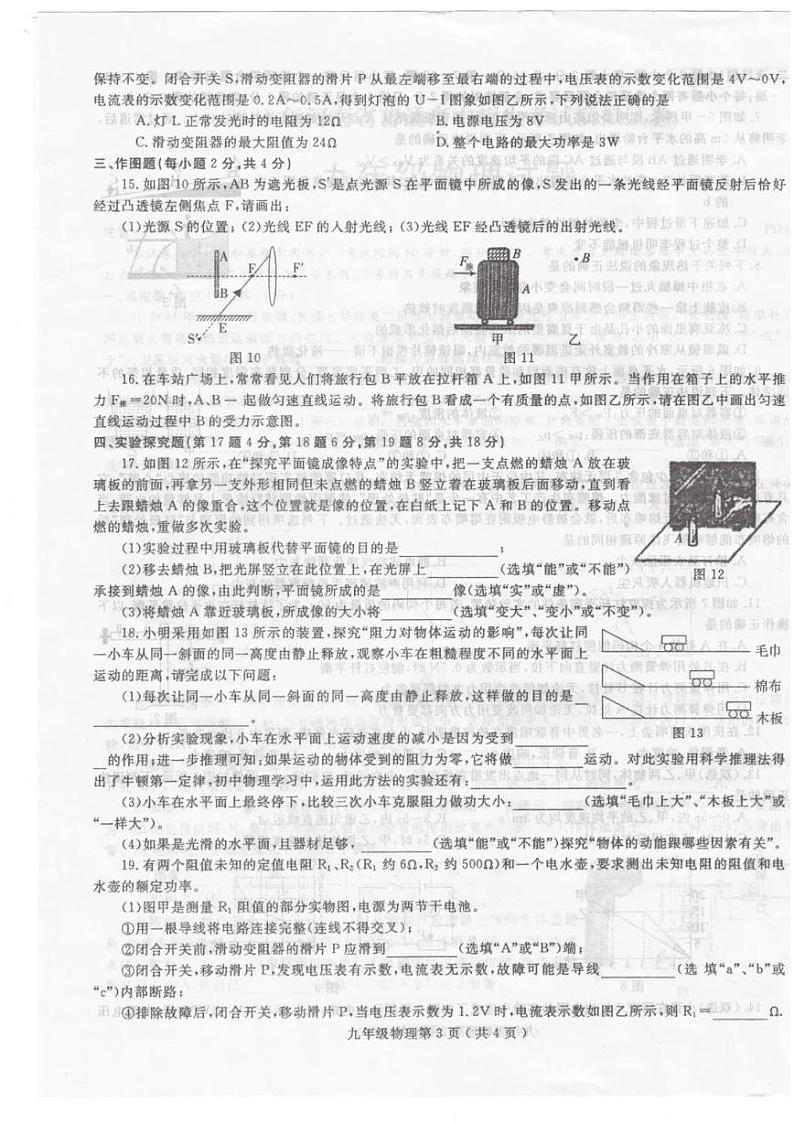 保持不变。闭合开关 S,滑动变阻器的滑片 P 从最左端移至最右端的过程中,电压表的示数变化范围是 4V～0V,
电流表的示数变化范围是 0.2A～0.5A,得到灯泡的 U－I 图象如图乙所示,下列说法正确的是
A.灯 L 正常发光时的电阻为 12Ω
B. 电源电压为 8V
C. 滑动变阻器的最大阻值为 24Ω
D. 整个电路的最大功率为 3W
三、作图题(每小题 2 分,共 4 分)
15.如图 10 所示,AB 为遮光板,S′是点光源 S 在平面镜中所成的像,S 发出的一条光线经平面镜反射后恰好
经过凸透镜左侧焦点 F,请画出:
(1)光源 S 的位置;(2)光线 EF 的入射光线;(3)光线 EF 经凸透镜后的出射光线。
A
F
F′
B
E
S′
图 10
F推
B
A
甲
B
乙
图 11
16.在车站广场上,常常看见人们将旅行包 B 平放在拉杆箱 A 上,如图 11 甲所示。当作用在箱子上的水平推
力 F推＝20N 时,A、B 一起做匀速直线运动。将旅行包 B 看成一个有质量的点,如图乙所示,请在图乙中画出匀速
直线运动过程中 B 的受力示意图。
四、实验探究题(第 17 题 4 分,第 18 题 6 分,第 19 题 8 分,共 18 分)
17.如图 12 所示,在“探究平面镜成像特点”的实验中,把一支点燃的蜡烛 A 放在玻
璃板的前面,再拿另一支外形相同但未点燃的蜡烛 B 竖立着在玻璃板后面移动,直到看
上去跟蜡烛 A 的像重合,这个位置就是像的位置,在白纸上记下 A 和 B 的位置。移动点
燃的蜡烛,重做多次实验。
A
图 12
(1)实验过程中用玻璃板代替平面镜的目的是____________;
(2)移去蜡烛 B,把光屏竖立在此位置上,在光屏上________(选填“能”或“不能”)
承接到蜡烛 A 的像,由此判断,平面镜所成的是________像(选填“实”或“虚”)。
(3)将蜡烛 A 靠近玻璃板,所成像的大小将________(选填“变大”、“变小”或“不变”)。
18.小明采用如图 13 所示的装置,探究“阻力对物体运动的影响”,每次让同
一小车从同一斜面的同一高度由静止释放,观察小车在粗糙程度不同的水平面上
运动的距离,请完成以下问题:
毛巾
棉布
木板
图 13
(1)每次让同一小车从同一斜面的同一高度由静止释放,这样做的目的是__
________________。
(2)分析实验现象,小车在水平面上运动速度的减小是因为受到________
__的作用;进一步推理可知:如果运动的物体受到的阻力为零,它将做________运动。对此实验用科学推理法得
出了牛顿第一定律,初中物理学习中,运用此方法的实验还有:________________。
(3)小车在水平面上最终停下,比较三次小车克服阻力做功大小:________(选填“毛巾上大”、“木板上大”或
“一样大”)。
(4)如果是光滑的水平面,且器材足够,________(选填“能”或“不能”)探究“物体的动能跟哪些因素有关”。
19.有两个阻值未知的定值电阻 R₁、R₂(R₁ 约 6Ω,R₂ 约 500Ω)和一个电水壶,要求测出未知电阻的阻值和电
水壶的额定功率。
(1)图甲是测量 R₁ 阻值的部分实物图,电源为两节干电池。
①用一根导线将电路连接完整(连线不得交叉);
②闭合开关前,滑动变阻器的滑片 P 应滑到________(选填“A”或“B”)端;
③闭合开关,移动滑片 P,发现电压表有示数,电流表无示数,故障可能是导线________(选 填“a”、“b”或
“c”)内部断路;
④排除故障后,闭合开关,移动滑片 P,当电压表示数为 1.2V 时,电流表示数如图乙所示,则 R₁＝________Ω.
九年级物理第 3 页（共 4 页）